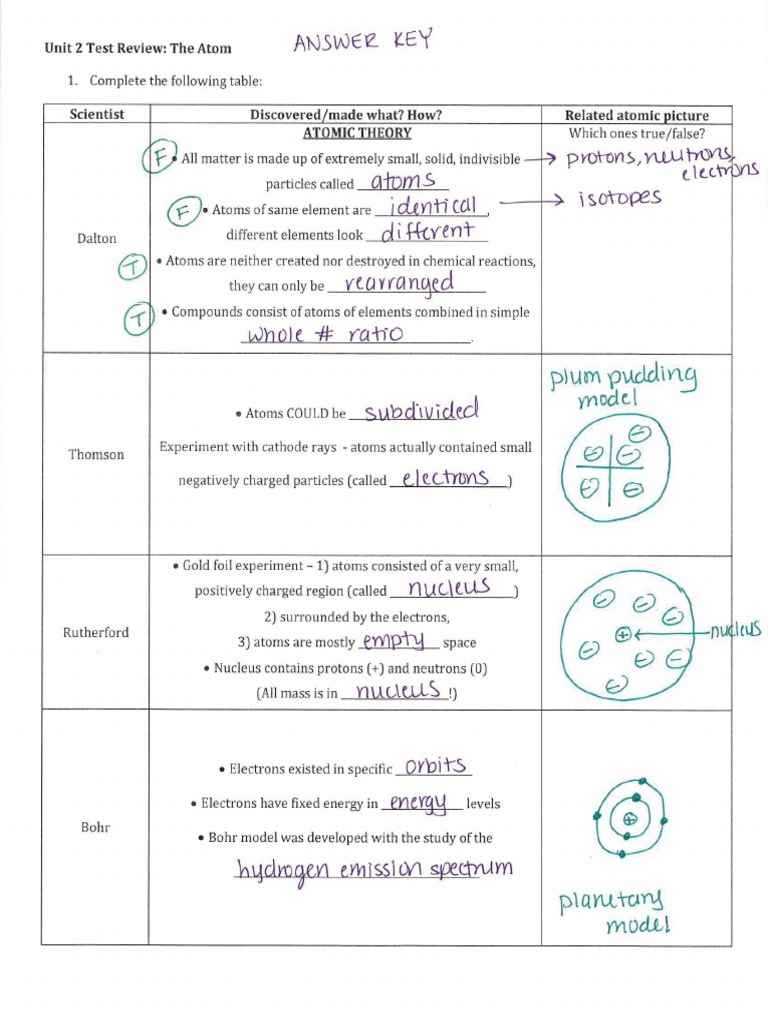 Unit 2 Test Review: The Atom
ANSWER KEY
1. Complete the following table:
Scientist
Discovered/made what? How?
Related atomic picture
Dalton
ATOMIC THEORY
F • All matter is made up of extremely small, solid, indivisible
particles called atoms
F • Atoms of same element are identical,
different elements look different
T • Atoms are neither created nor destroyed in chemical reactions,
they can only be rearranged
T • Compounds consist of atoms of elements combined in simple
whole # ratio.
Which ones true/false?
protons, neutrons,
electrons
isotopes
Thomson
• Atoms COULD be subdivided
Experiment with cathode rays - atoms actually contained small
negatively charged particles (called electrons)
plum pudding
model
Rutherford
• Gold foil experiment – 1) atoms consisted of a very small,
positively charged region (called nucleus)
2) surrounded by the electrons,
3) atoms are mostly empty space
• Nucleus contains protons (+) and neutrons (0)
(All mass is in nucleus!)
+
nucleus
Bohr
• Electrons existed in specific orbits
• Electrons have fixed energy in energy levels
• Bohr model was developed with the study of the
hydrogen emission spectrum
+
planetary
model